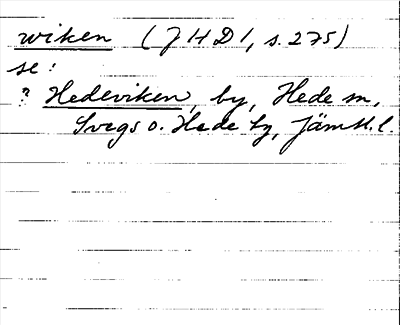 wiken (JHD1, s. 275)
se:
? Hedeviken, by, Hede sn,
Svegs o. Hede tg, Jämtl. l.